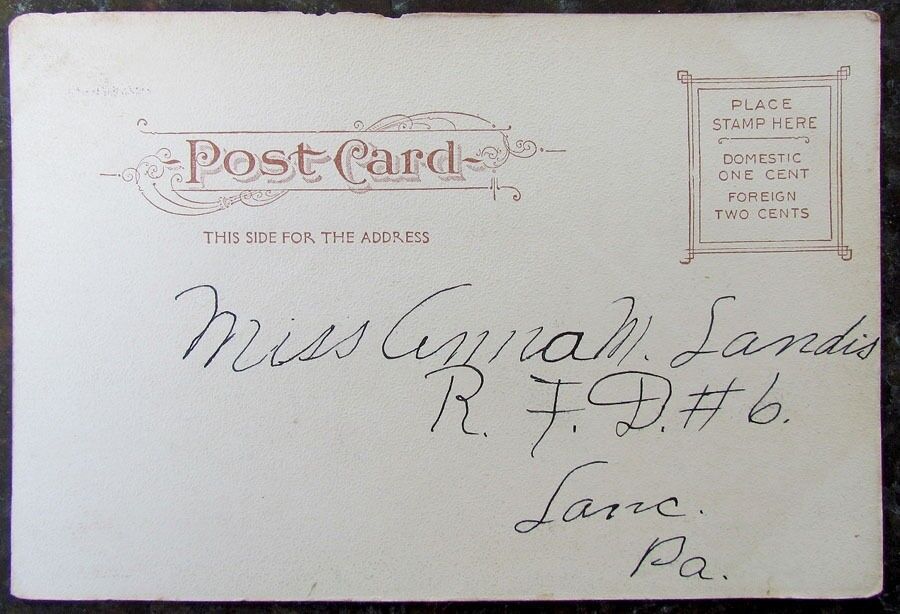 Post Card
THIS SIDE FOR THE ADDRESS
PLACE
STAMP HERE
DOMESTIC
ONE CENT
FOREIGN
TWO CENTS
Miss Anna M. Landis
R. F. D. # 6.
Lanc.
Pa.